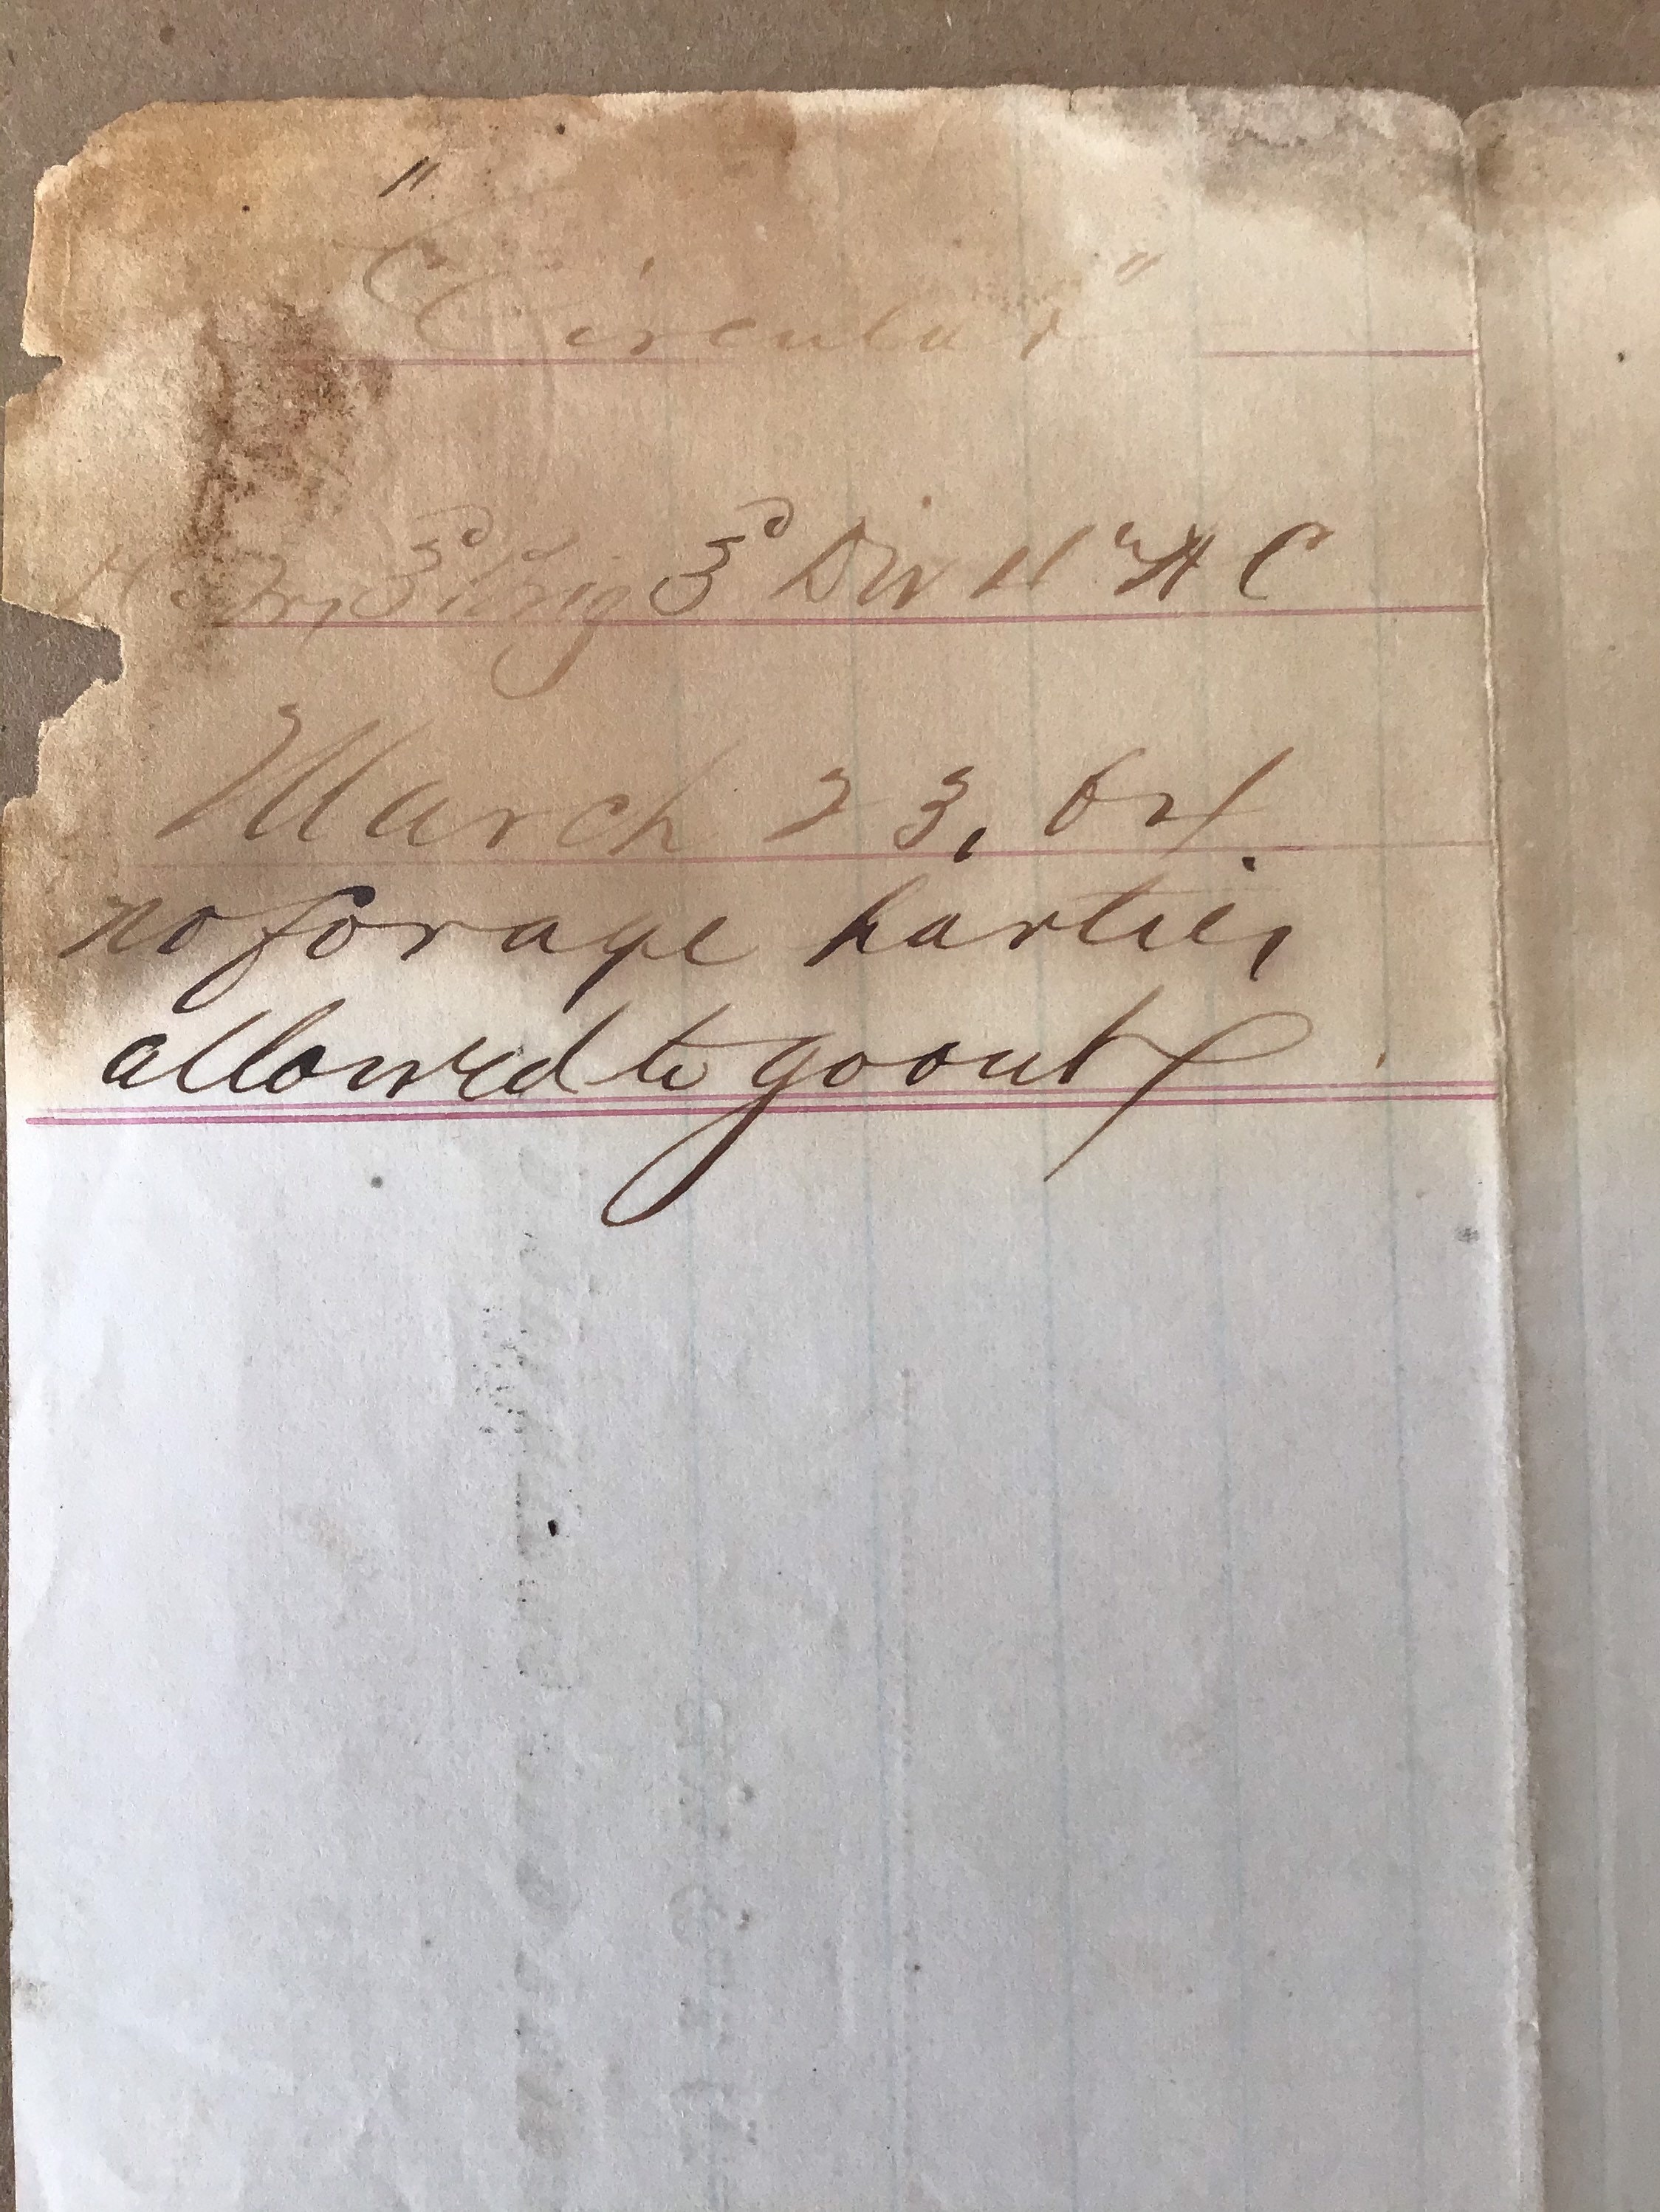 "Circular"
Hd Qrs 3d Brig 3d Div 11" A C
March 23, 64.
no forage parties
allowed to go out